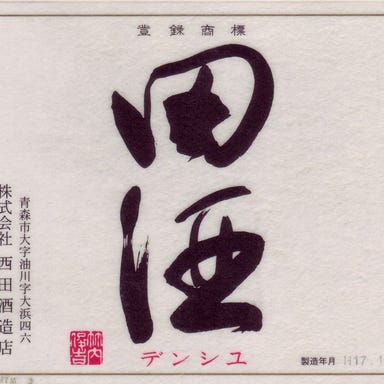 登録商標
田酒
デンシユ
青森市大字油川字大浜四六
株式会社 西田酒造店
製造年月 H17.1